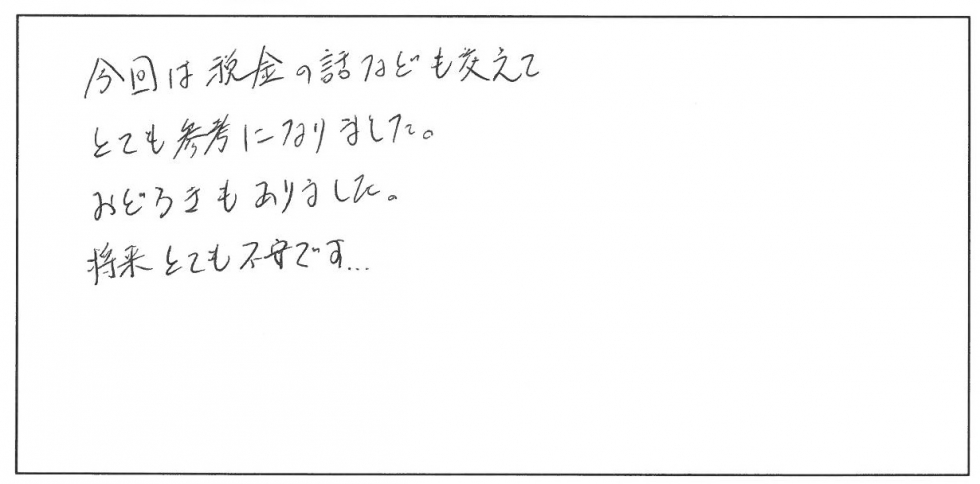 今回は税金の話なども交えて
とても参考になりました。
おどろきもありました。
将来とても不安です…